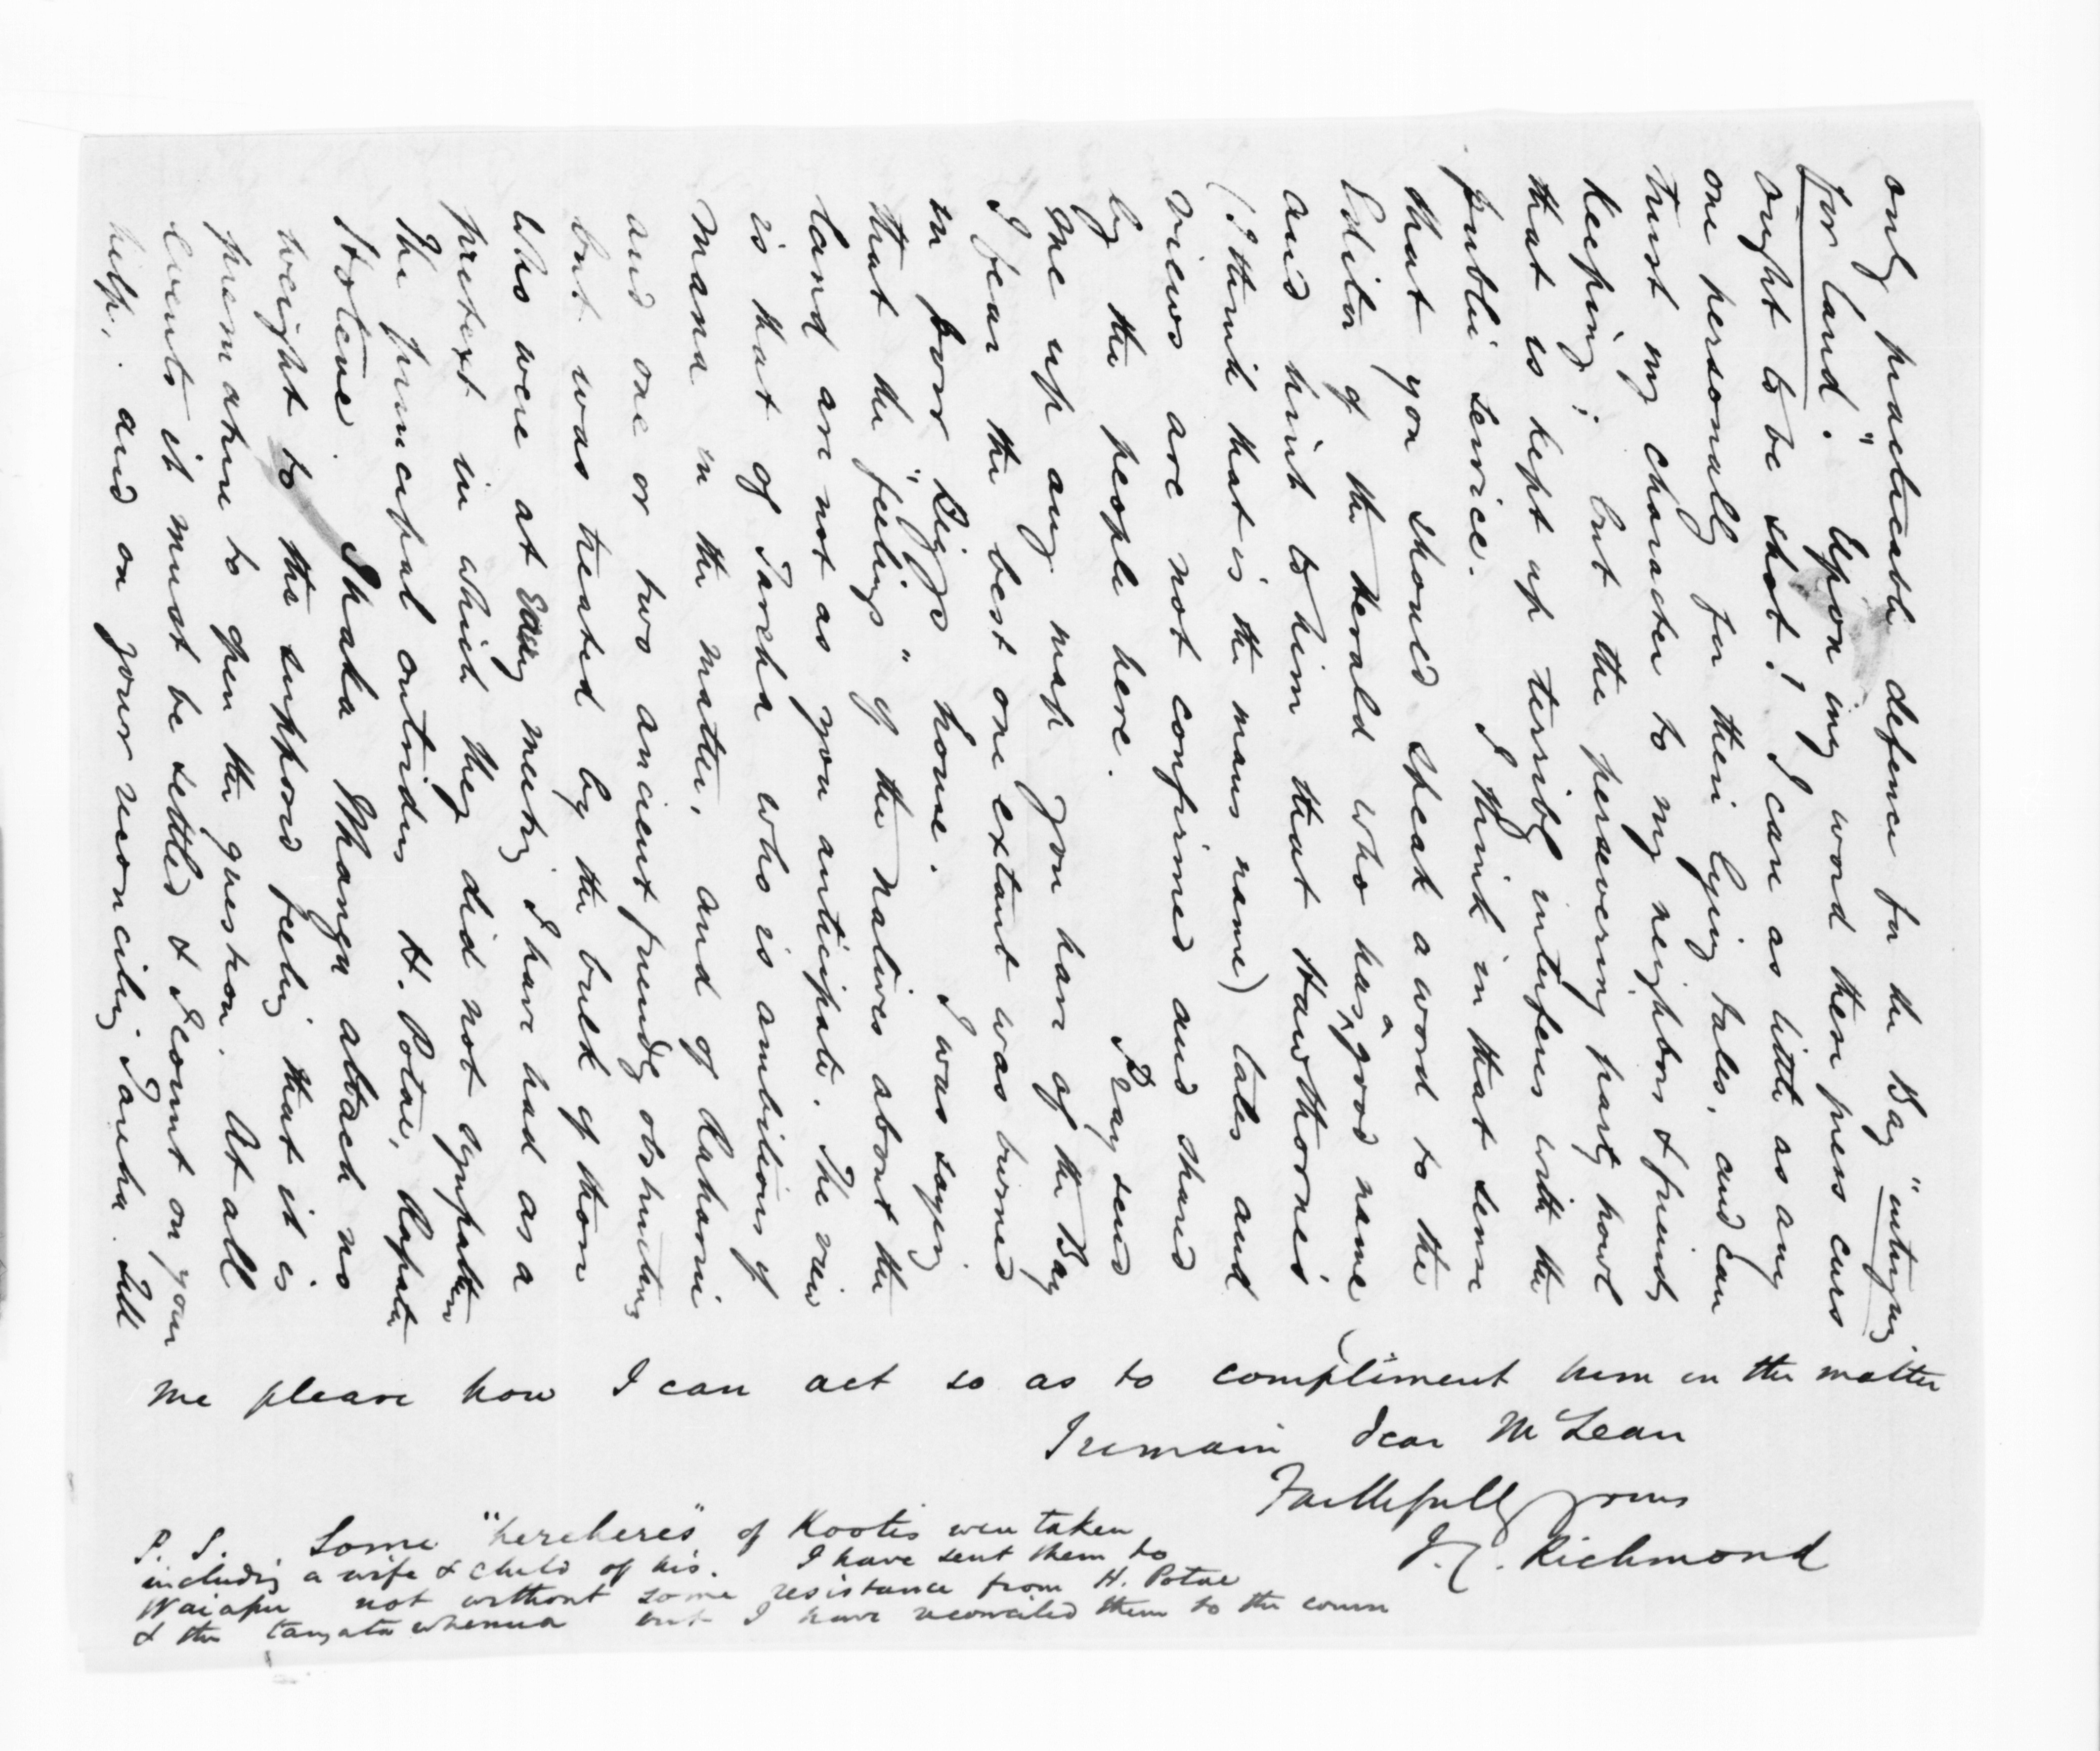 only practicable defence for the Bay "intriguing
for land". Upon my word these press curs
ought to be shot! I care as little as any
one personally for their lying tales, and can
trust my character to my neighbors & friends
keeping; but the persevering party howl
that is kept up terribly interferes with the
public service. I think in that sense
that you should speak a word to the
Editor of the Herald who has a good name
and hint to him that Hawthorne's
(I think that is the mans name) tales and
views are not confirmed and shared
by the people here. Pray send
me up any map you have of the Bay
I fear the best one extant was burned
in poor Biggs house. I was saying
that the "feelings" of the natives about the
land are not as you anticipate. The view
is that of Tareha who is ambitious of
mana in the matter, and of Kahorni
and one or two ancient friendly obstructives
but was treated by the bulk of those
who were at meeting I have had as a
pretext in which they did not sympathise
the principal outsiders H. Potae, Ropata
Hotene. Ihaka Whanga attach no
weight to the supposed feeling that it is
premature to open the question. At all
events it must be settled & I count on your
help, and on your reconciling Tareha. Tell
me please how I can act so as to compliment him in the matter
I remain dear McLean
Faithfully yours
J.C. Richmond
P.S. Some "hereheres" of Kootis were taken
including a wife & child of his. I have sent them to
Waiapu not without some resistance from H. Potae
& the tangata whenua but I have reconciled them to the course